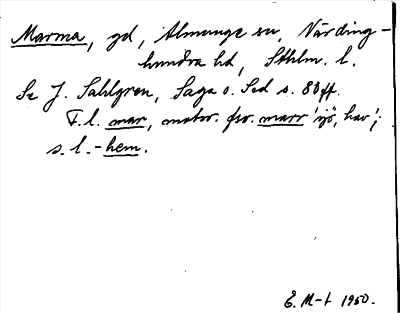 Marma, gd, Almunge sn, Närding-
hundra hd, Sthlm. l.
Se J. Sahlgren, Saga o. Sed s. 88 ff.
F. l. mar, motsv. fsv. marr 'sjö, hav';
s. l. -hem.
E. M-t 1950.